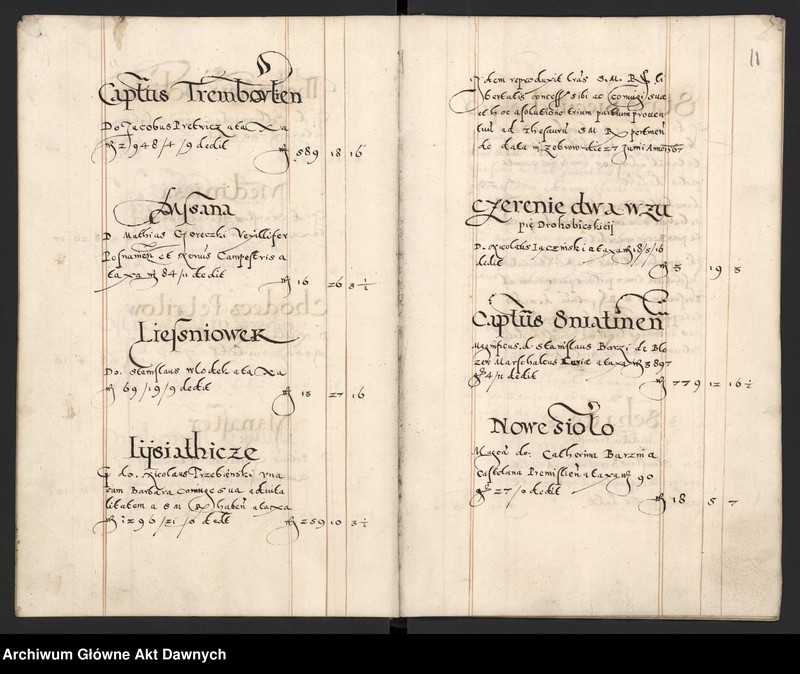 Captus Tremboulien
Do. Jacobus Pretwicz a taxa
m 2948/4/9 dedit m 589 18 16
Lysana
D. Mathias Goreczki Vexillifer
Posnanien et Notarius Campestris a
taxa m 84/11 dedit m 16 26 3 1/2
Liessniowek
Do. Stanislaus Wlodek a taxa
m 69/19/9 dedit m 13 27 16
Lysiathicze
G do. Nicolaus Trzebienski una
cum Barbara coniuge sua advita
litatem a S M R haben a taxa
m 1296/21/0 dedit m 259 10 3 1/2
11
Item reproduxit lras S. M. R. li
bertatis concess sibi ac coniugi suae
et hoc a solutione trium partium proven
tuu ad Thesauru S M R pertinen
de data in
Czerenie dwa wzu
pię Drohobicskiej
D. Nicolaus Iaczinski a taxa m 18/5/16
dedit m 3 19 3
Captus Sniatinen
Magnificus d. Stanislaus Barzi de Blo
zew Marschalcus Curie a taxa m 3897
g 4/11 dedit m 779 12 16 1/2
Nowe sioło
Magca do: Catherina Barzina
Castellana Premislien a taxa m 90
g 27/0 dedit m 18 5 7
Archiwum Główne Akt Dawnych